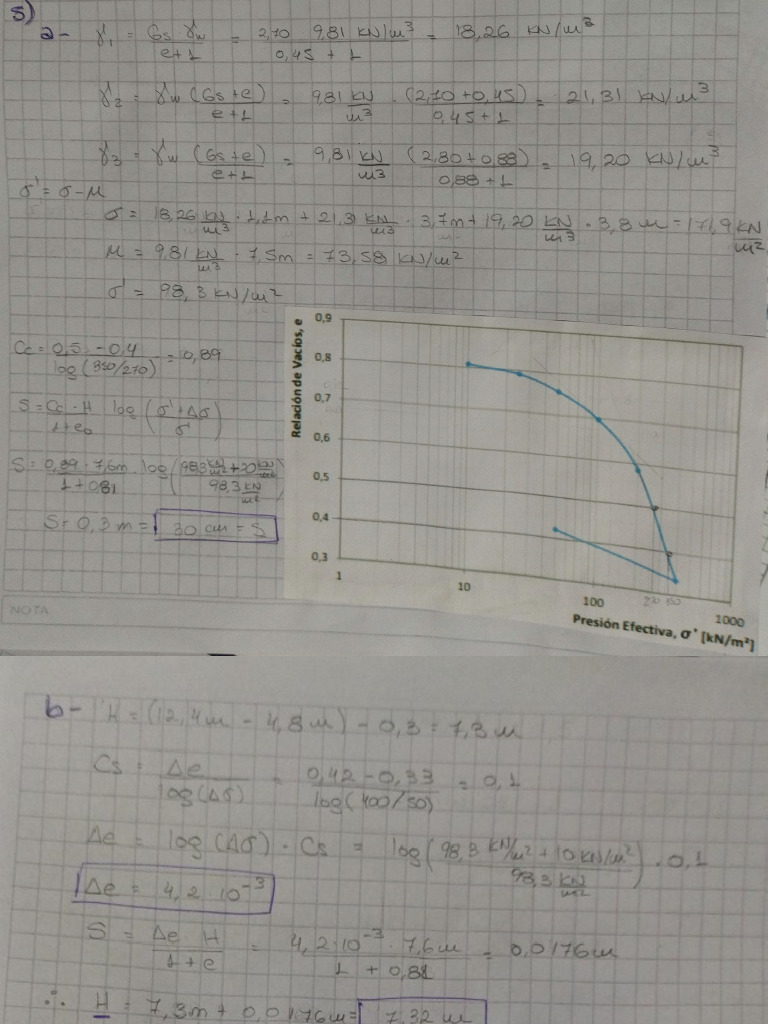 5)
a- γ1 = Gs γw / e+1 = 2,70 9,81 kN/m³ / 0,45 + 1 = 18,26 kN/m³
γ2 = γw (Gs+e) / e+1 = 9,81 kN/m³ · (2,70+0,45) / 0,45+1 = 21,31 kN/m³
γ3 = γw (Gs+e) / e+1 = 9,81 kN/m³ (2,80+0,88) / 0,88+1 = 19,20 kN/m³
σ' = σ - μ
σ = 18,26 kN/m³ · 1,1m + 21,31 kN/m³ · 3,7m + 19,20 kN/m³ · 3,8 m = 171,9 kN/m²
μ = 9,81 kN/m³ · 7,5m = 73,58 kN/m²
σ' = 98,3 kN/m²
Cc = 0,5 - 0,4 / log(350/270) = 0,89
S = Cc · H / 1+e0 log (σ'+Δσ / σ')
S = 0,89 · 7,6m / 1+0,81 · log (98,3 kN/m² + 20 kN/m² / 98,3 kN/m²)
S = 0,3 m = 30 cm = S
NOTA
Relación de Vacíos, e
0,9
0,8
0,7
0,6
0,5
0,4
0,3
1 10 100 270 350 1000
Presión Efectiva, σ' [kN/m²]
b- H = (12,4m - 4,8m) - 0,3 = 7,3 m
Cs = Δe / log(Δσ) = 0,42 - 0,33 / log(400/50) = 0,1
Δe = log(Δσ) · Cs = log(98,3 kN/m² + 10 kN/m² / 98,3 kN/m²) · 0,1
Δe = 4,2 · 10⁻³
S = Δe · H / 1+e = 4,2·10⁻³ · 7,6m / 1 + 0,81 = 0,0176m
∴ H = 7,3m + 0,0176m = 7,32 m